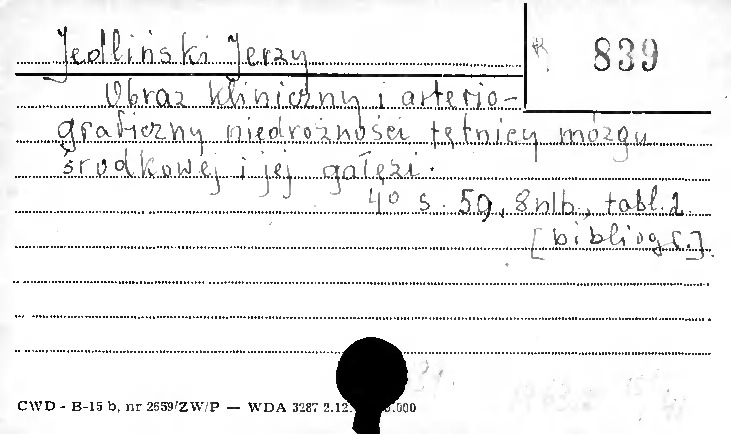 Jedliński Jerzy
839
Obraz kliniczny i arterio-
graficzny niedrożności tętnicy mózgu
środkowej i jej gałęzi.
4° s. 59, 8 nlb., tabl. 2
[bibliogr.].
CWD - B-15 b, nr 2659/ZW/P — WDA 3287 2.12. .000